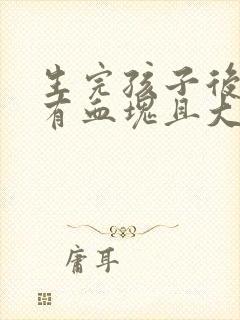 生完孩子後
有血塊且大
庸耳